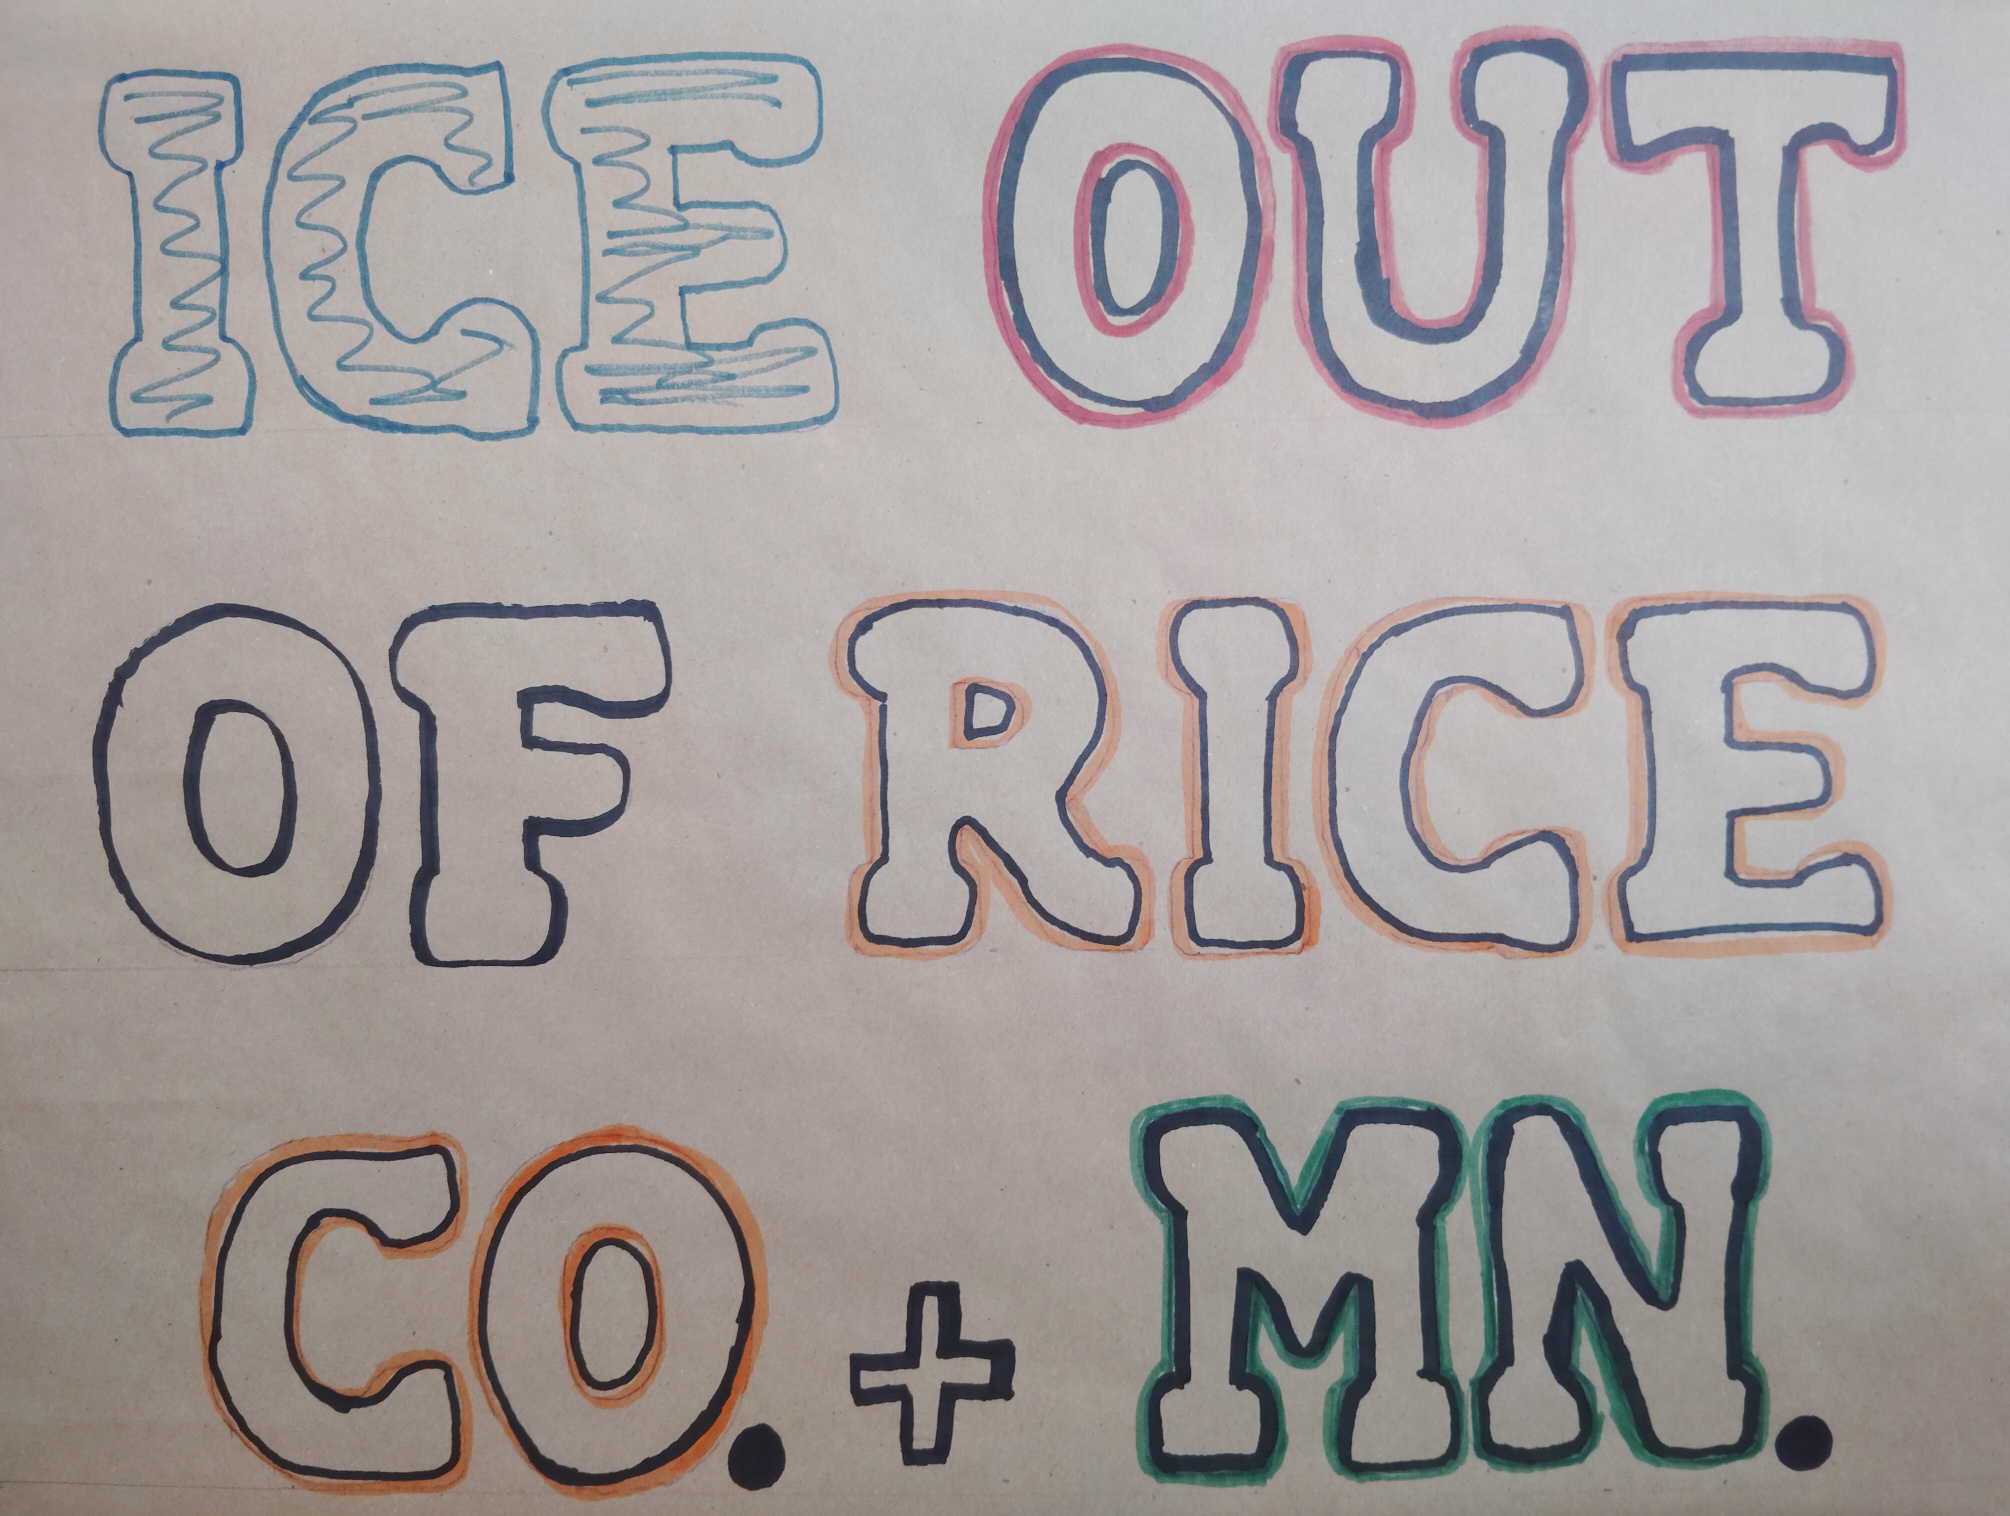 ICE OUT
OF RICE
CO. + MN.